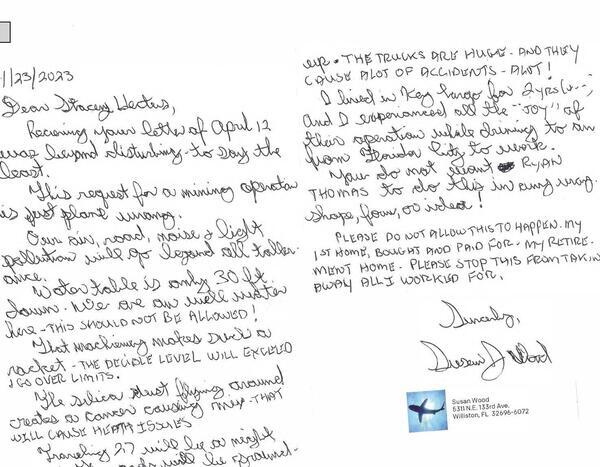 1/23/2023
Dear Stacey Hectus,
Receiving your letter of April 12
was beyond disturbing - to say the
least.
This request for a mining operation
is just plane wrong.
Our air, road, noise & light
pollution will go beyond all toller-
ance.
Water table is only 30 ft.
down. We are on well water
here - THIS SHOULD NOT BE ALLOWED!
That machinery makes such a
racket - THE DECIBLE LEVEL WILL EXCEED
& GO OVER LIMITS.
The silica dust flying around
creates a cancer causing mix - THAT
WILL CAUSE HEATH ISSUES
Traveling 27 will be a night
roads will be ground-
up. THE TRUCKS ARE HUGE - AND THEY
CAUSE ALOT OF ACCIDENTS - ALOT!
I lived in Key Largo for 2 yrs
and I experienced all the "JOY" of
their operation while driving to an
from Florida City to work.
You do not want RYAN
THOMAS to do this in any way,
shape, form, or idea!
PLEASE DO NOT ALLOW THIS TO HAPPEN. MY
1ST HOME, BOUGHT AND PAID FOR - MY RETIRE-
MENT HOME. PLEASE STOP THIS FROM TAKIN
AWAY ALL I WORKED FOR.
Sincerly,
Susan J Wood
Susan Wood
5311 N.E. 133rd Ave.
Williston, FL 32696-6072